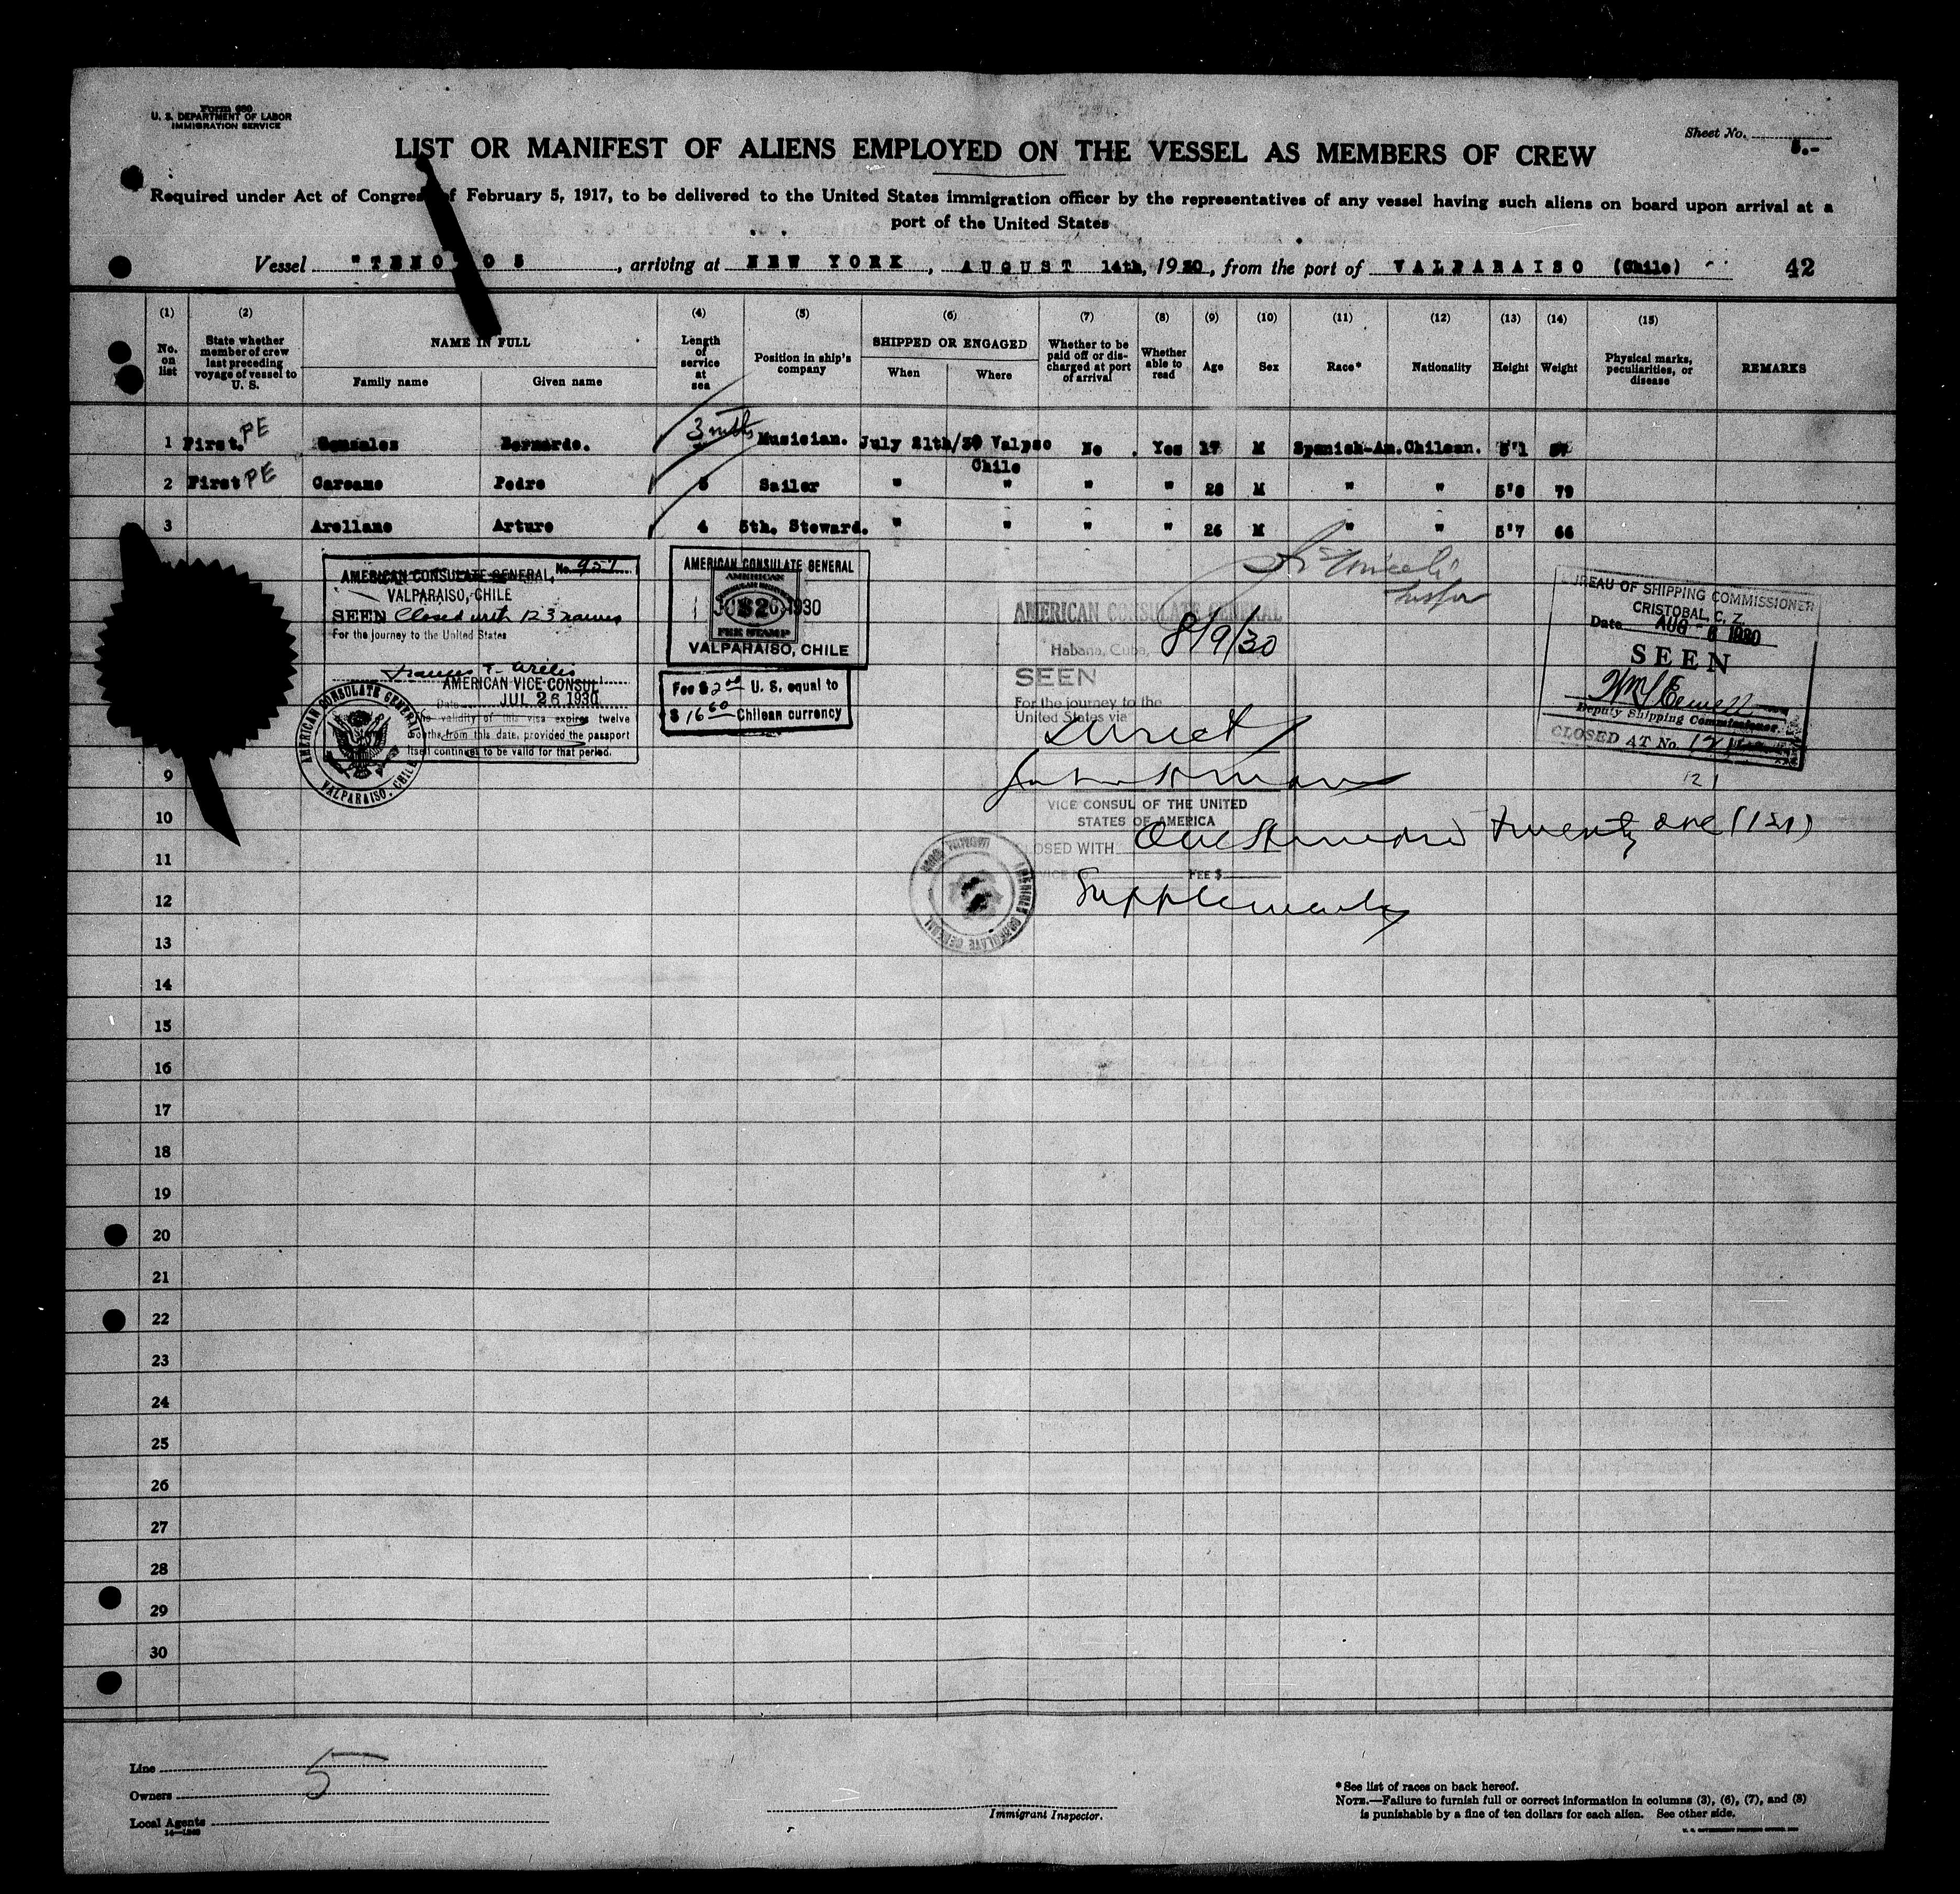 Form 680
U. S. DEPARTMENT OF LABOR
IMMIGRATION SERVICE
Sheet No. 5.-
LIST OR MANIFEST OF ALIENS EMPLOYED ON THE VESSEL AS MEMBERS OF CREW
Required under Act of Congress of February 5, 1917, to be delivered to the United States immigration officer by the representatives of any vessel having such aliens on board upon arrival at a
port of the United States
Vessel , arriving at NEW YORK, AUGUST 14th, 1930, from the port of VALPARAISO (Chile) 42
(1) (2) (4) (5) (6) (7) (8) (9) (10) (11) (12) (13) (14) (15)
No. on list
State whether member of crew last preceding voyage of vessel to U. S.
NAME IN FULL
Family name
Given name
Length of service at sea
Position in ship's company
SHIPPED OR ENGAGED
When
Where
Whether to be paid off or discharged at port of arrival
Whether able to read
Age
Sex
Race*
Nationality
Height
Weight
Physical marks, peculiarities, or disease
REMARKS
1 First. PE Gonzales Bernardo. 3 mths Musician. July 21th/30 Valpso No . Yes 17 M Spanish-Am. Chilean. 5'1
Chile
2 First PE Carcamo Pedro 5 Sailor " " " " 28 M " " 5'8 79
3 Arellano Arturo 4 5th. Steward. " " " " 26 M " " 5'7 66
AMERICAN CONSULATE GENERAL, No. 957
VALPARAISO, CHILE
SEEN Closed with 123 names
For the journey to the United States
AMERICAN VICE CONSUL
Date JUL 26 1930
The validity of this visa expires twelve
months from this date, provided the passport
itself continues to be valid for that period.
AMERICAN CONSULATE GENERAL
VALPARAISO, CHILE
AMERICAN CONSULATE GENERAL
AMERICAN
$2
1930
FEE STAMP
VALPARAISO, CHILE
Fee $ 2 00 U. S. equal to
$ 16 60 Chilean currency
AMERICAN CONSULATE GENERAL
Habana, Cuba, 8/9/30
SEEN
For the journey to the
United States via
Direct
VICE CONSUL OF THE UNITED
STATES OF AMERICA
CLOSED WITH One Hundred twenty one (121)
FEE $
Supplementary
AMERICAN CONSULATE GENERAL
BUREAU OF SHIPPING COMMISSIONER
CRISTOBAL, C. Z.
Date AUG - 6 1930
SEEN
Deputy Shipping Commissioner
CLOSED AT No. 121
121
9
10
11
12
13
14
15
16
17
18
19
20
21
22
23
24
25
26
27
28
29
30
Line
5
Owners
Local Agents
Immigrant Inspector.
*See list of races on back hereof.
NOTE.—Failure to furnish full or correct information in columns (3), (6), (7), and (8)
is punishable by a fine of ten dollars for each alien. See other side.